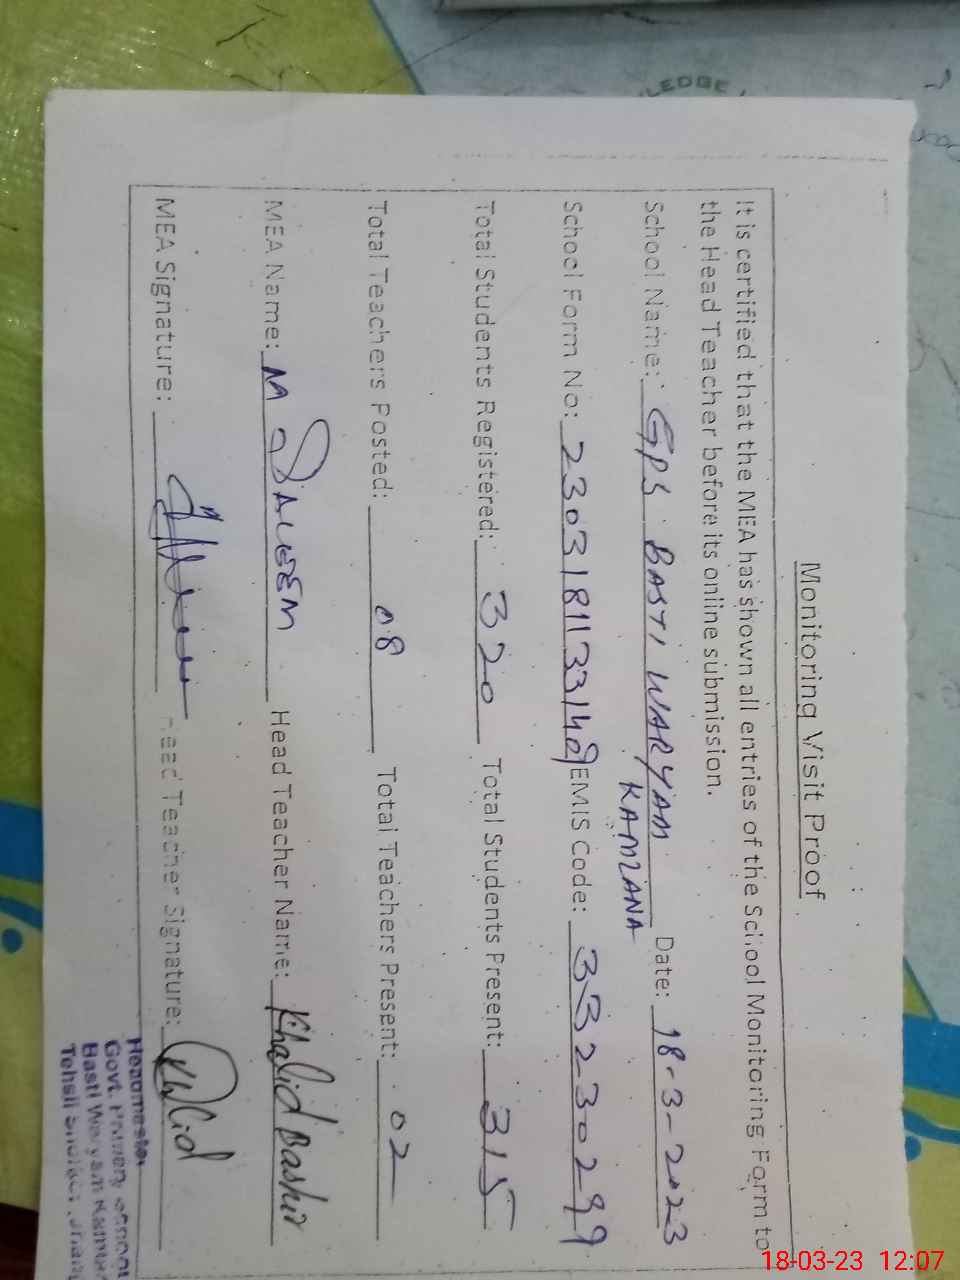 LEDGE
Monitoring Visit Proof
It is certified that the MEA has shown all entries of the School Monitoring Form to
the Head Teacher before its online submission.
School Name: GPS BASTI WARYAM KAMLANA Date: 18-3-2023
School Form No: 2303181133148 EMIS Code: 33230299
Total Students Registered: 320 Total Students Present: 315
Total Teachers Posted: 08 Total Teachers Present: 02
MEA Name: M SALEEM Head Teacher Name: Khalid Bashir
MEA Signature: Head Teacher Signature: Khalid
Headmaster
Govt. Primary School
Basti Waryam
Tehsil
18-03-23 12:07